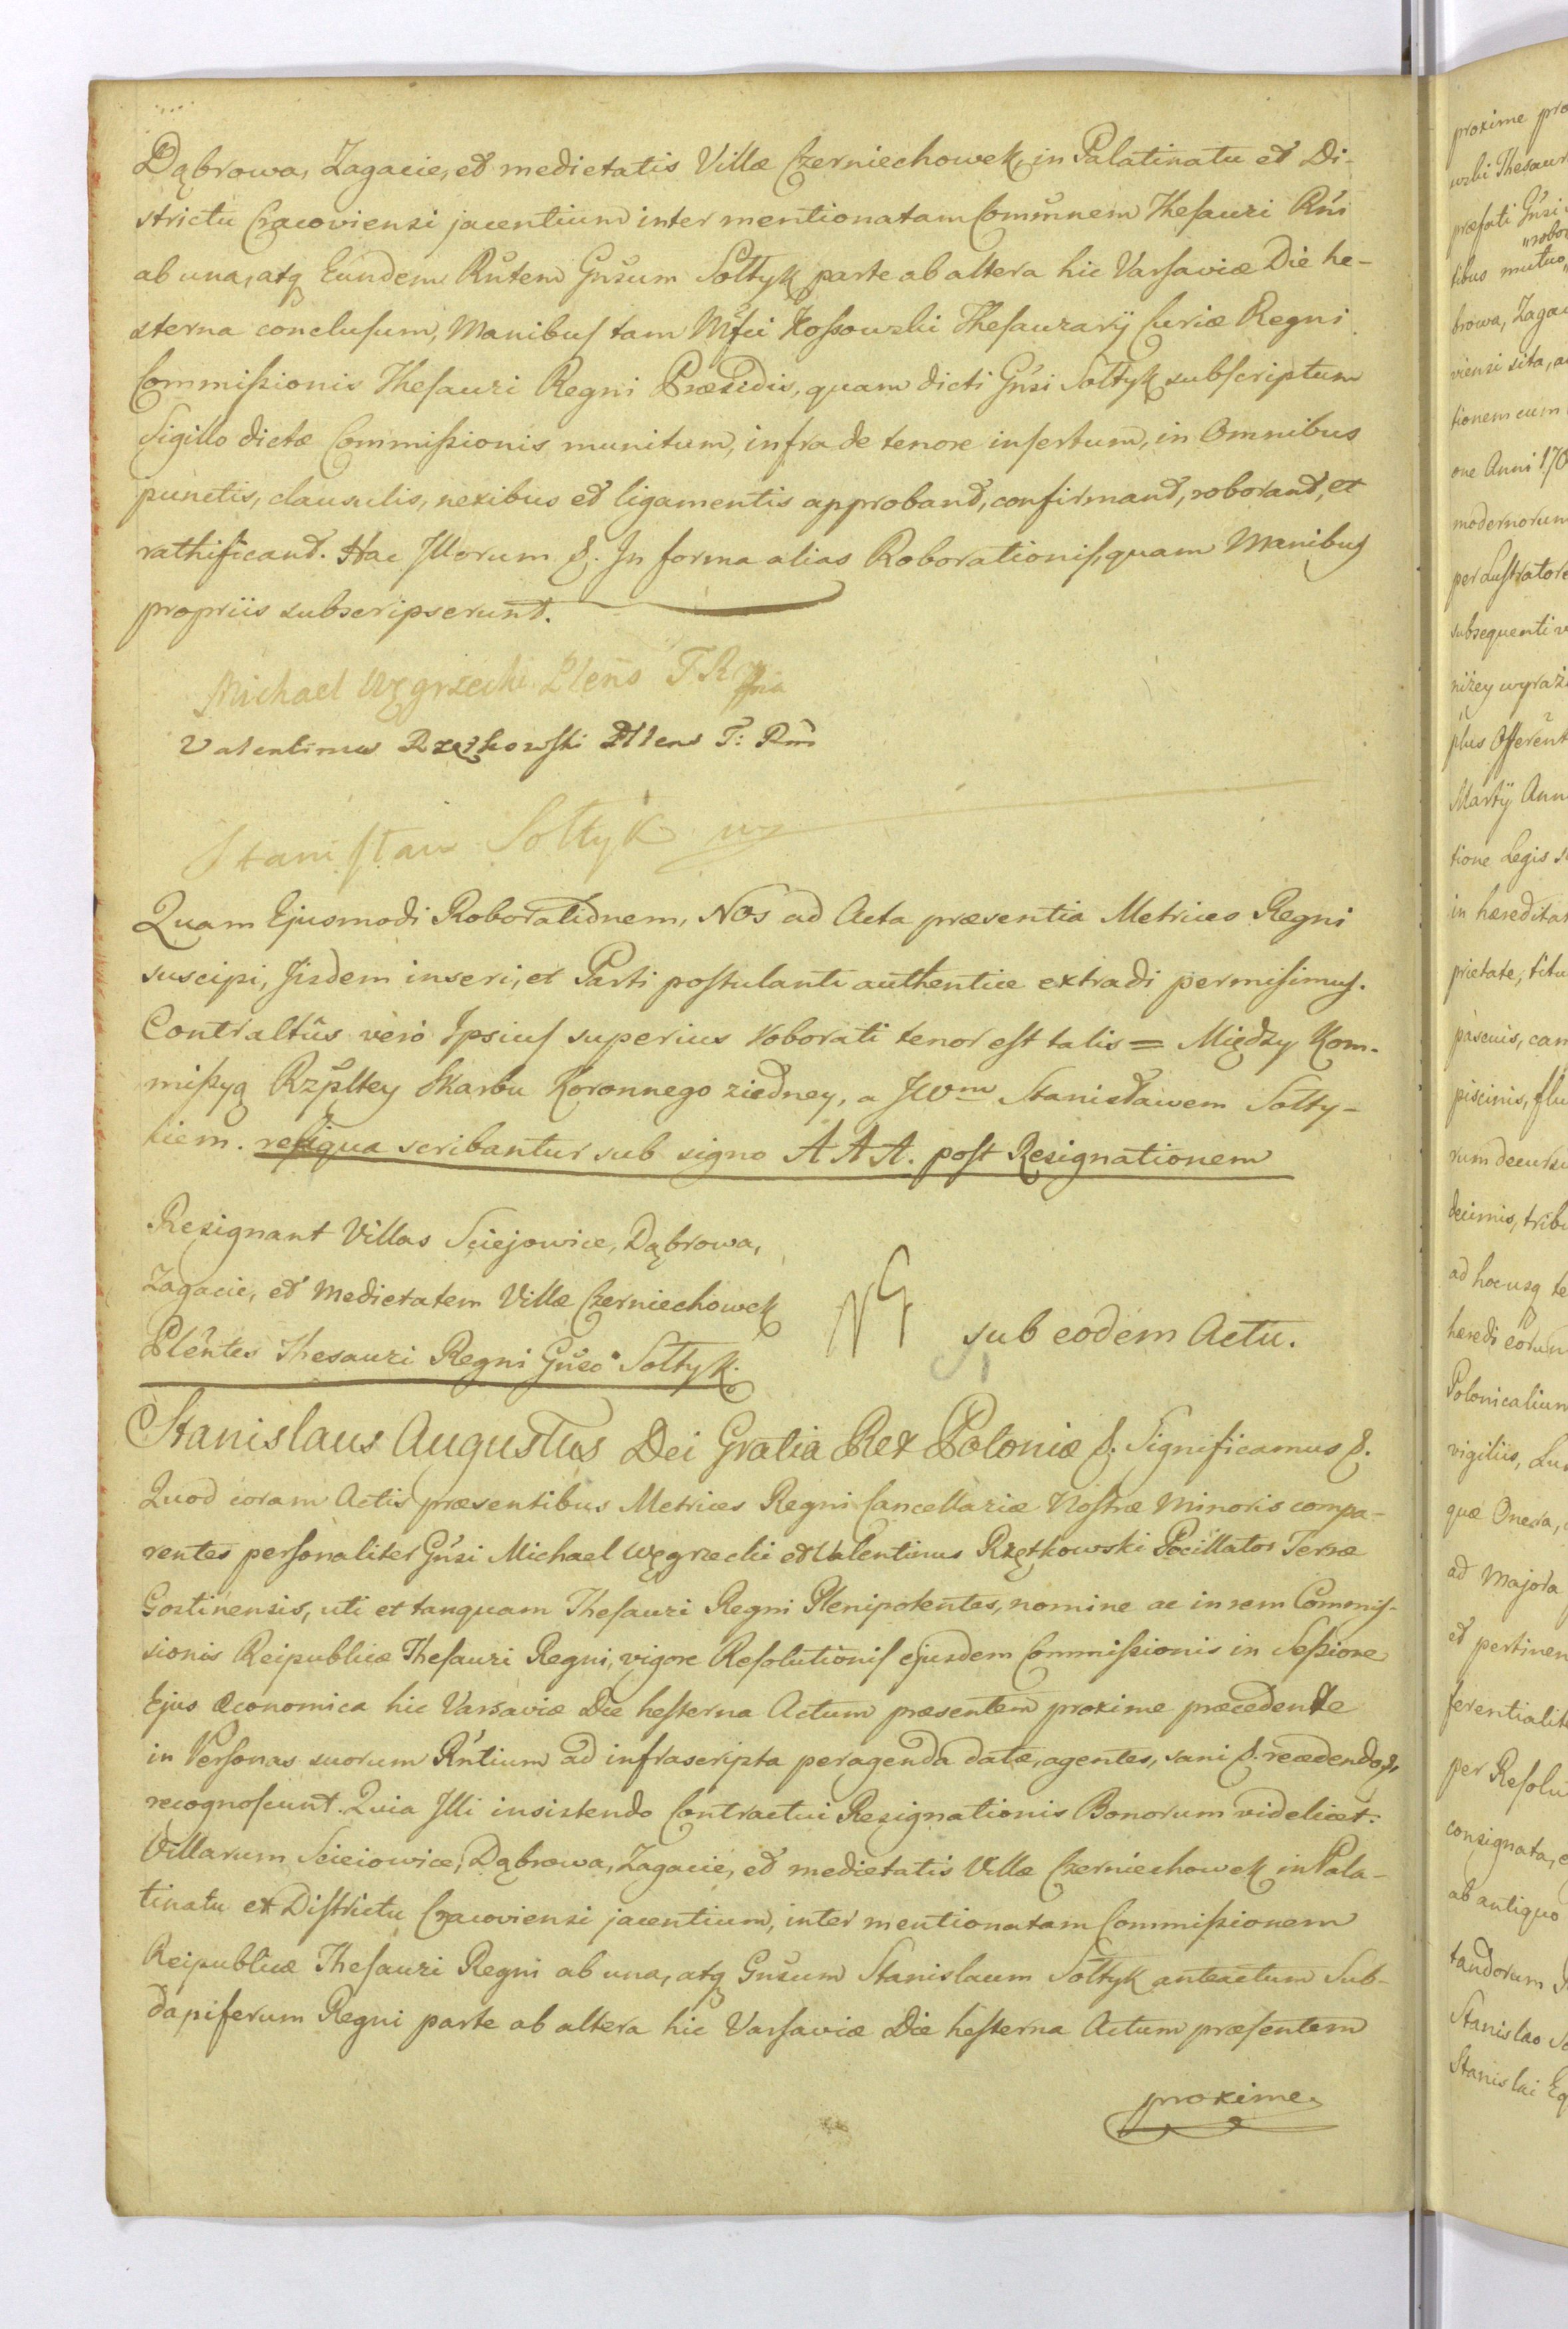 Dąbrowa, Zagacie, et medietatis Villæ Czerniechowek, in Palatinatu et Di-
strictu Cracoviensi jacentium inter mentionatam Comũnem Thesauri Rńi
ab una, atq Eundem Rñtem Gñsum Sołtyk parte ab altera hic Varsaviæ Die he-
sterna conclusum, Manibus tam Mfci Kossowski Thesaurarij Curiæ Regni
Commissionis Thesauri Regni Præsidis, quam dicti Gńsi Sołtyk subscriptum
Sigillo dictæ Commissionis munitum, infra de tenore insertum, in Omnibus
punctis, clausulis, nexibus et ligamentis approband, confirmand, roborand, et
rathificand. Hac Illorum &. In forma alias Roborationis, quam Manibus
propriis subscripserunt.
Michael Węgrzecki Pleńs T. R.
Valentinus Rzętkowski Plens T: Rni
Stanisław Sołtyk
Quam Ejusmodi Roborationem, Nos ad Acta præsentia Metrices Regni
suscipi, Iisdem inseri, et Parti postulanti authentice extradi permisimus.
Contraltûs verò Ipsius superius roborati tenor est talis = Między Kom-
missyą Rzpltey Skarbu Koronnego z iedney, a JWm Stanisławem Sołty-
kiem. reliqua scribantur sub signo A A A. post Resignationem
Resignant Villas Sciejowice, Dąbrowa,
Zagacie, et Medietatem Villæ Czerniechowek
Plêntes Thesauri Regni Gñso Sołtyk.
sub eodem Actu.
Stanislaus Augustus Dei Gratia Rex Poloniæ &. Significamus &.
Quod coram Actis præsentibus Metrices Regni Cancellariæ Nostræ Minoris compa-
rentes personaliter Gńsi Michael Węgrzecki et Valentinus Rzętkowski Pocillator Terræ
Gostinensis, uti et tanquam Thesauri Regni Plenipotentes, nomine ac in rem Commis-
sionis Reipublicæ Thesauri Regni, vigore Resolutionis ejusdem Commissionis in Sessione
Ejus Œconomica hic Varsaviæ Die hesterna Actum præsentem proxime præcedente
in Personas suorum Rńtium ad infrascripta peragenda datæ, agentes, sani &. recedendo &,
recognoscunt. Quia Illi insistendo Contractui Resignationis Bonorum videlicet:
Villarum Scieiowice, Dąbrowa, Zagacie, et medietatis Villæ Czerniechowek in Pala-
tinatu et Districtu Cracoviensi jacentium, inter mentionatam Commissionem
Reipublicæ Thesauri Regni ab una, atq Gnsum Stanislaum Sołtyk anteactum Sub-
dapiferum Regni parte ab altera hic Varsaviæ Die hesterna Actum præsentem
proxime
proxime
præfati Gńsi
tibus mutuo
browa,
viensi sita,
tionem cum
one Anni
modernorum
per Lustratore
subsequenti
niżey
plus Offerent
Martij
tione Legis
in hæreditat
prietate,
pascuis,
piscinis,
rum decursu
decimis,
ad hocusq
hæredi eorum
Polonicalium
vigiliis,
quæ Onera,
ad Majora
et pertinen
ferentialit
per Resolu
consignata,
ab antiquo
tandorum
Stanislao
Stanislai